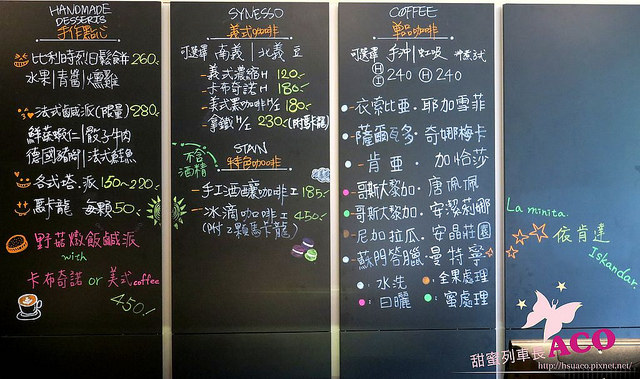 HANDMADE
DESSERTS
手作點心
比利時烈日鬆餅 260.
水果|青醬|燻雞
法式鹹派(限量) 280.
鮮蔬蝦仁|骰子牛肉
德國豬腳|法式鮭魚
各式塔.派 150~220.
馬卡龍 每顆50.
野菇燉飯鹹派
with
卡布奇諾 or 美式coffee
450.
SYNESSO
義式咖啡
可選擇 南義|北義 豆
義式濃縮 H 120.
卡布奇諾 H 180.
美式黑咖啡 H/I 180.
拿鐵 H/I 230.(附馬卡龍)
含酒精
特色咖啡
手工酒釀咖啡 I 185.
冰滴咖啡 I 450.
(附2顆馬卡龍)
COFFEE
單品咖啡
可選擇 手沖|虹吸 沖煮方式
Ⓗ Ⓘ 240 Ⓗ 240
衣索比亞.耶加雪菲
薩爾瓦多.奇娜梅卡
肯亞.加恰莎
哥斯大黎加.唐佩佩
哥斯大黎加.安潔莉娜
尼加拉瓜.安晶莊園
蘇門答臘.曼特寧
: 水洗 : 全果處理
: 日曬 : 蜜處理
La minita.
依肯達
Iskandar.
甜蜜列車長ACO
http://hsuaco.pixnet.net/